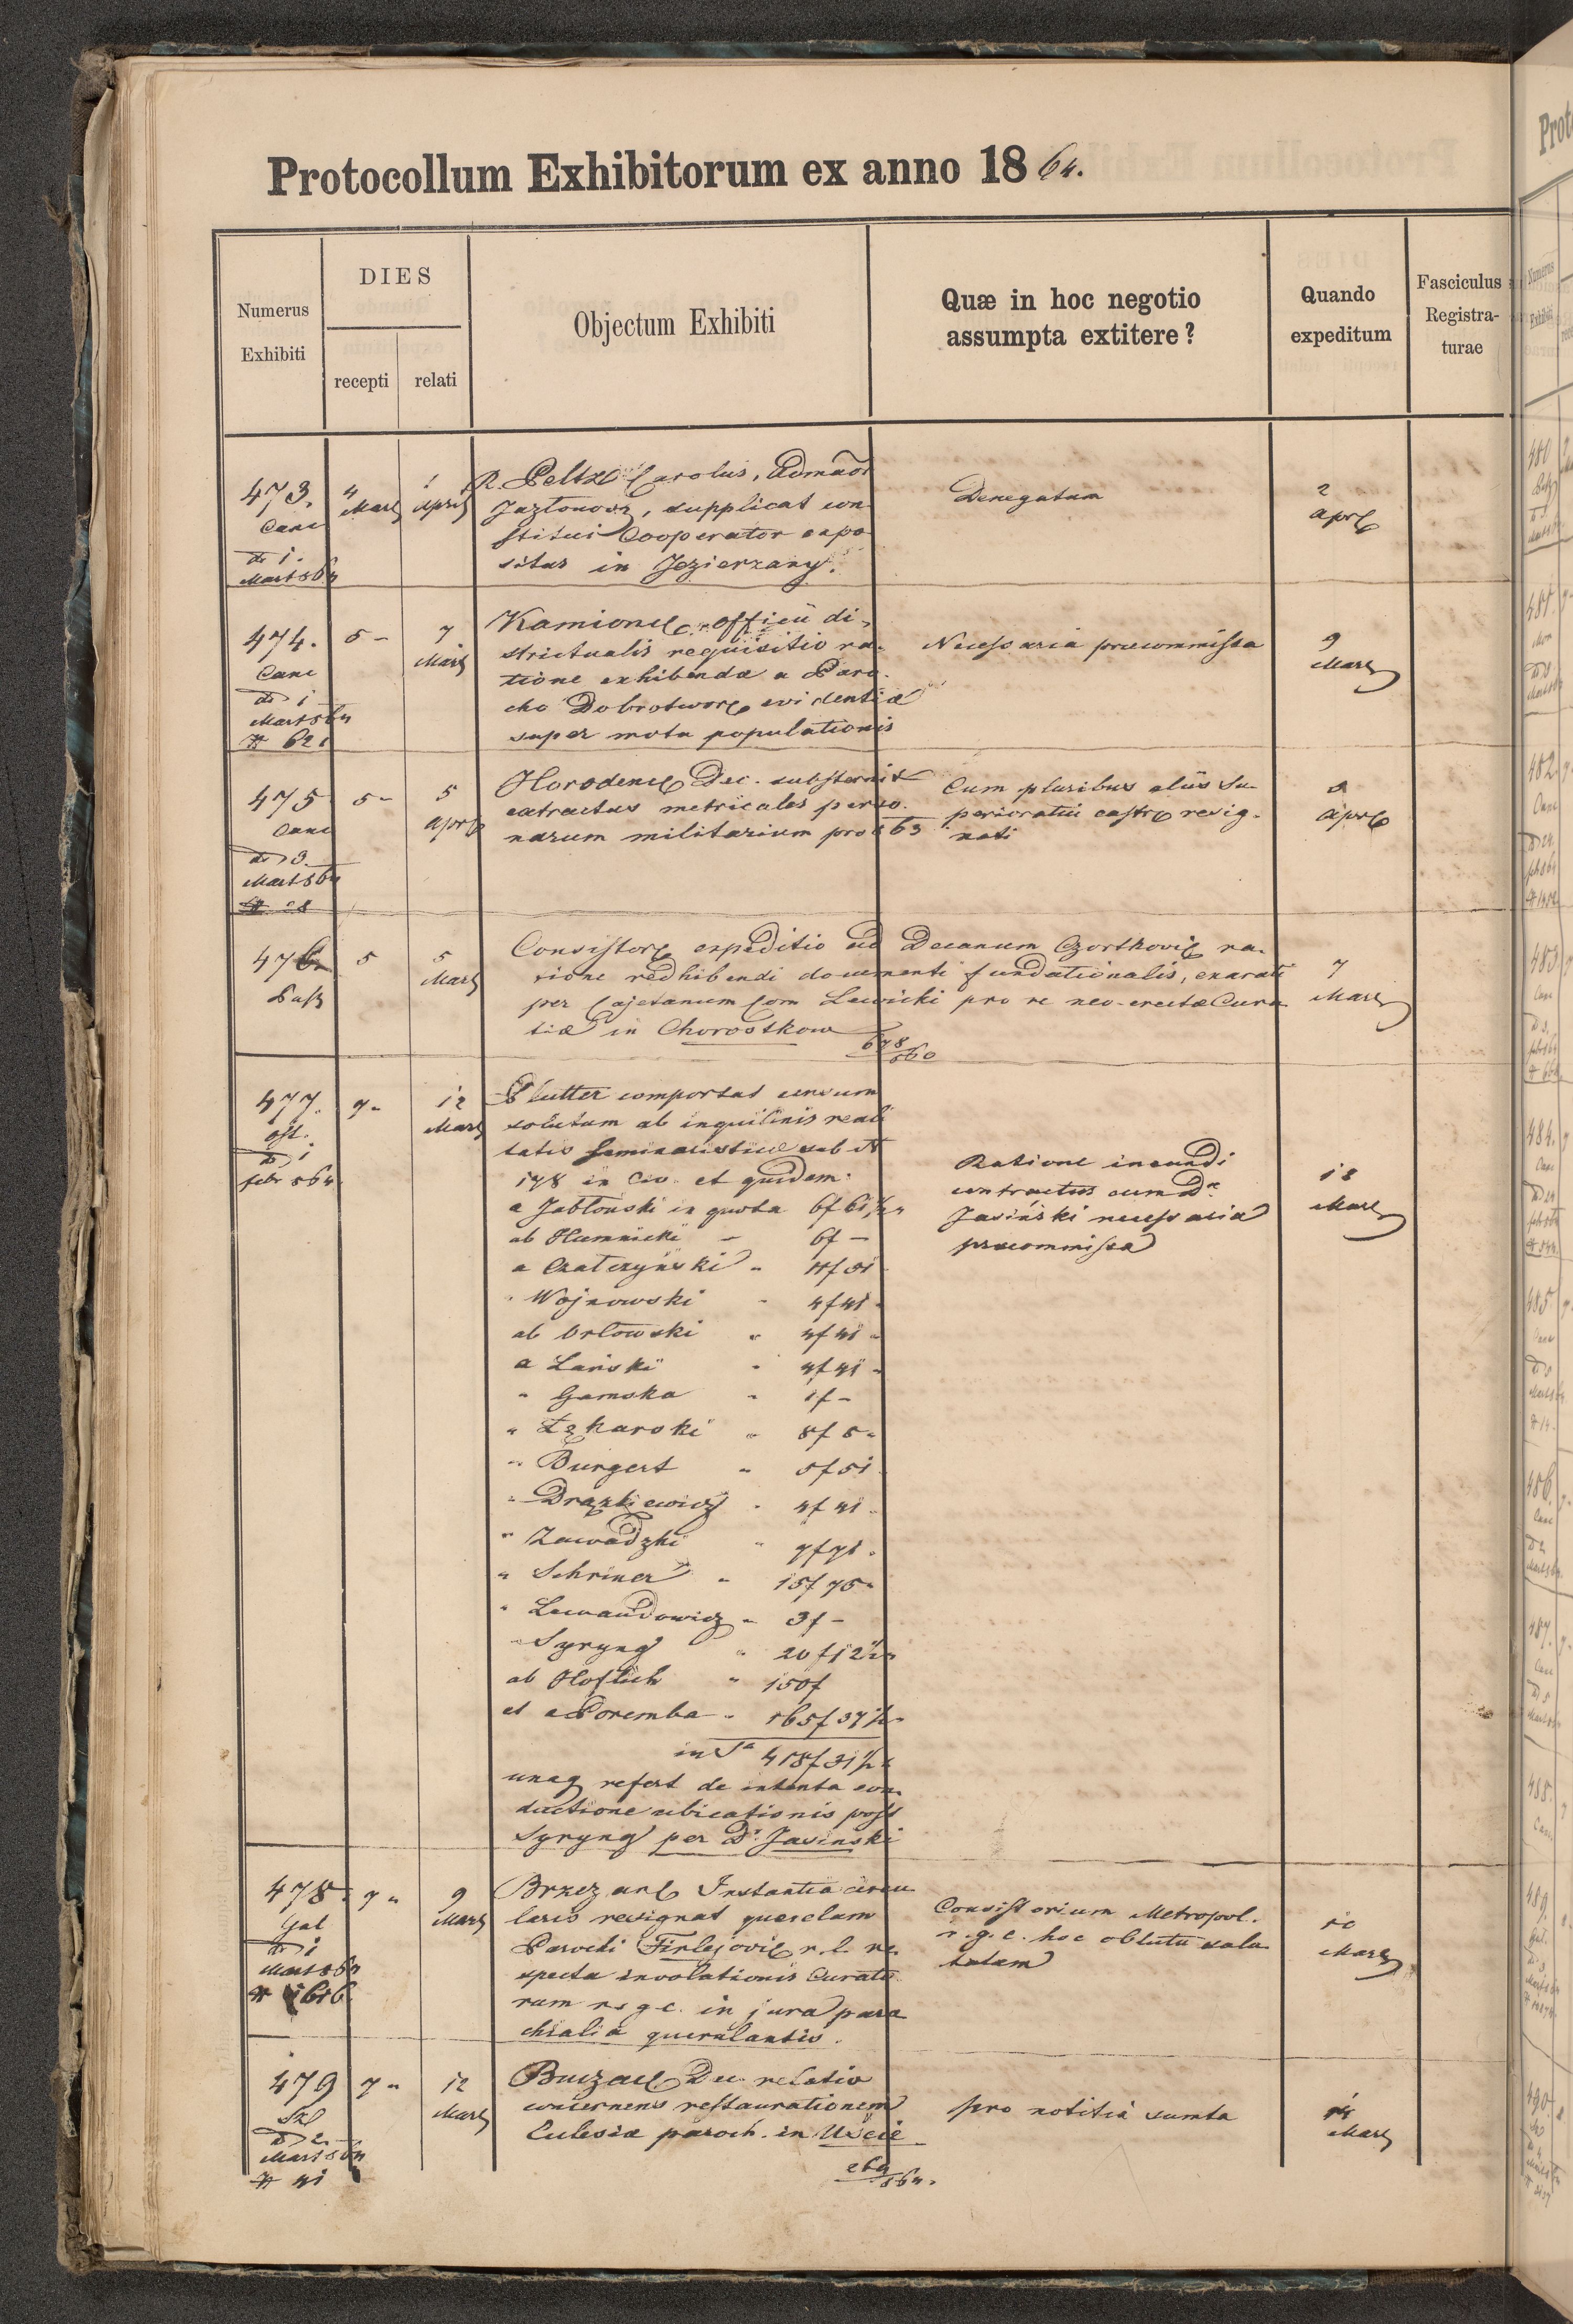 Protocollum Exhibitorum ex anno 18 64.
Numerus
Exhibiti
DIES
recepti
relati
Objectum Exhibiti
Quæ in hoc negotio
assumpta extitere?
Quando
expeditum
Fasciculus
Registra-
turae
473.
Canc
d 1.
Mart 864
4
Mart
1
April
R. Peltz Carolus, Admāor
Jazłonow, supplicat con
stitui Cooperator expo
situs in Jezierzany.
Denegatum
2
apr
474.
Canc
d 1
Mart 864
# 621
5 -
7
Mart
Kamionc officii di-
strictualis requisitio ra-
tione exhibendæ a Paro-
cho Dobrotwor evidentiæ
super motu populationis
Necessaria præcommissa
9
Mart
475
Canc
d 3.
Mart 864
# 28
5 -
5
apr
Horodenc Dec. substernit
extractus metricales perso-
narum militarium pro 863
Cum pluribus aliis Su-
perioratui castr resig-
nati
9
apr
476
5
5
Mart
Consistor expeditio ad Decanum Czortkovi ra-
tione redhibendi documenti fundationalis, exarati
per Cajetanum Com Lewicki pro re neo-erectæ Cura
tiæ in Chorostkow
678/860
7
Mart
477.
d 1
febr 864
7 -
12
Mart
Plutter comportat censum
solutum ab inquilinis reali
tatis Seminaristicæ sub N
178 in Civ. et quidem:
a Jabłonski in quota 6f 61 1/2 "
ab Humnicki - 6f -
" Wojnowski " 4f 41 "
ab Orłowski " 4f 41 "
a Lański " 4f 41 "
" Gamska " 1f -
" Łękarski " 8f 8 "
" Burgert " 5f 51
" Drążkiewicz " 4f 41 "
" Zawadzki " 7f 71 "
" Schriner " 15f 75 "
" Lewandowicz " 3f -
" Syryng " 20f 12 1/2 "
ab Hoflich " 150f
et a Poremba " 165f 37 1/2 "
in Sa 418f 31 1/2 "
unaq refert de intenta con-
ductione ubicationis post
Syryng per D. Jasinski
Ratione ineundi
contractus cum D.
Jasiński necessaria
præcommissa
18
Mart
478.
Gal
d 1
Mart 864
7 "
9
Mart
Brzezan Instantia circu
laris resignat querelam
Parochi Firlejovi r. l. re-
specta involationis Curato
rum r. g. c. in jura paro
chialia querulantis.
Consistorium Metropol.
r. g. c. hoc oblatu salu
tatum
10
Mart
479
d 2
Mart 864
# 41
7 "
12
Mart
Buczac Dec. relatio
concernens restaurationem
Ecclesiæ paroch. in Uście
269/864.
pro notitia sumta
14
Mart